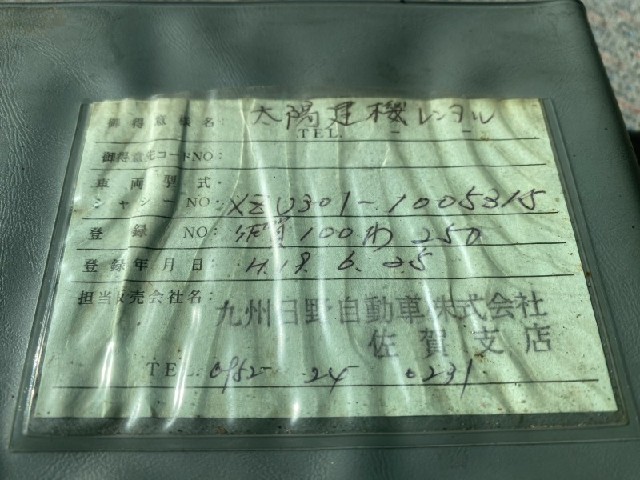 御得意様名: 太陽建機レンタル
TEL.
御得意先コードNO:
車両型式・
シャシーNO: XZU301-1005315
登録NO: 佐賀100わ250
登録年月日: H.18.6.25
担当販売会社名: 九州日野自動車株式会社
佐賀支店
TEL. 0952 24 0231